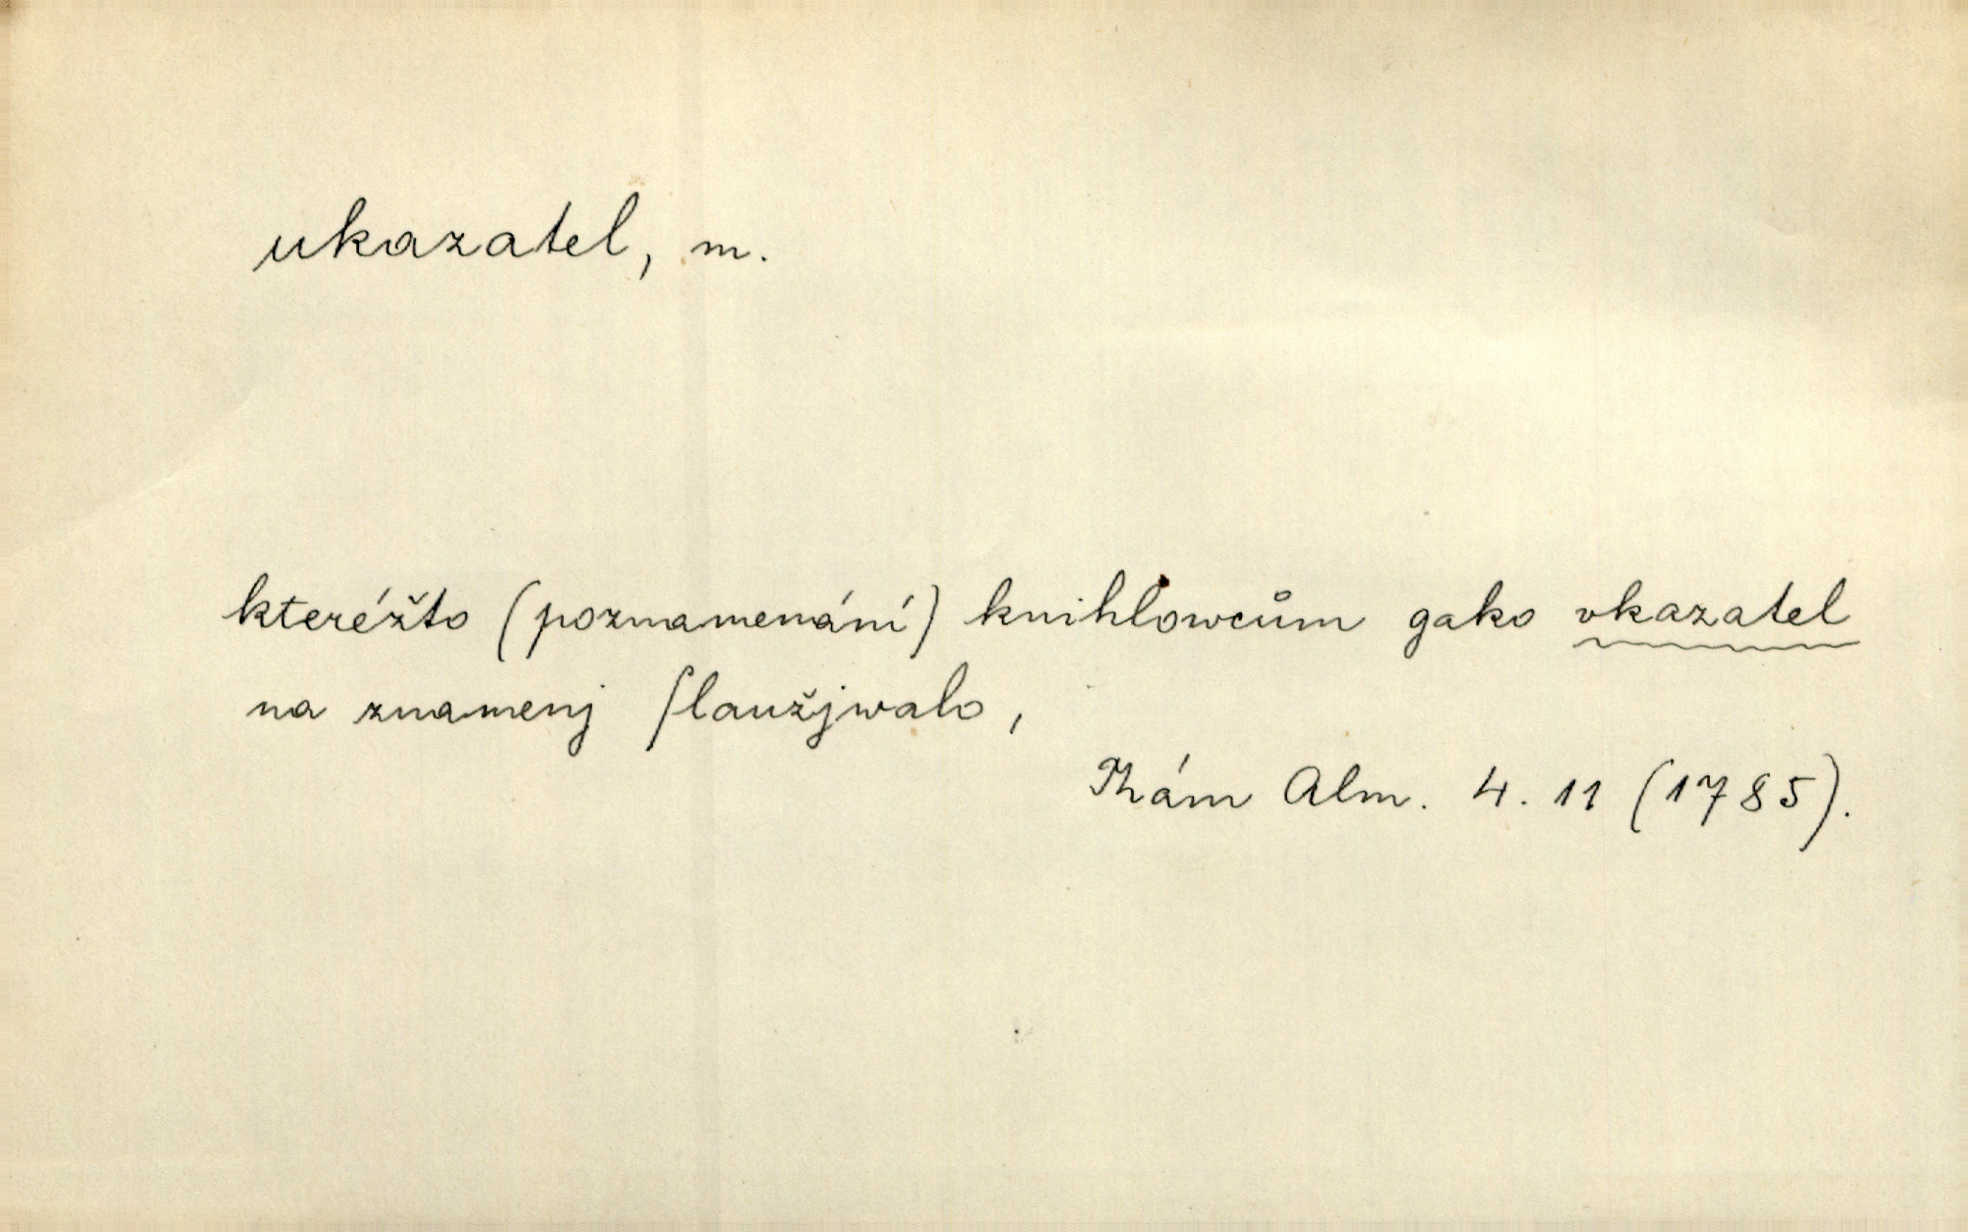 ukazatel, m.
kteréžto (poznamenání) knihlowcům gako vkazatel
na znamenj ſlaužjwalo,
Thám Alm. 4. 11 (1785).